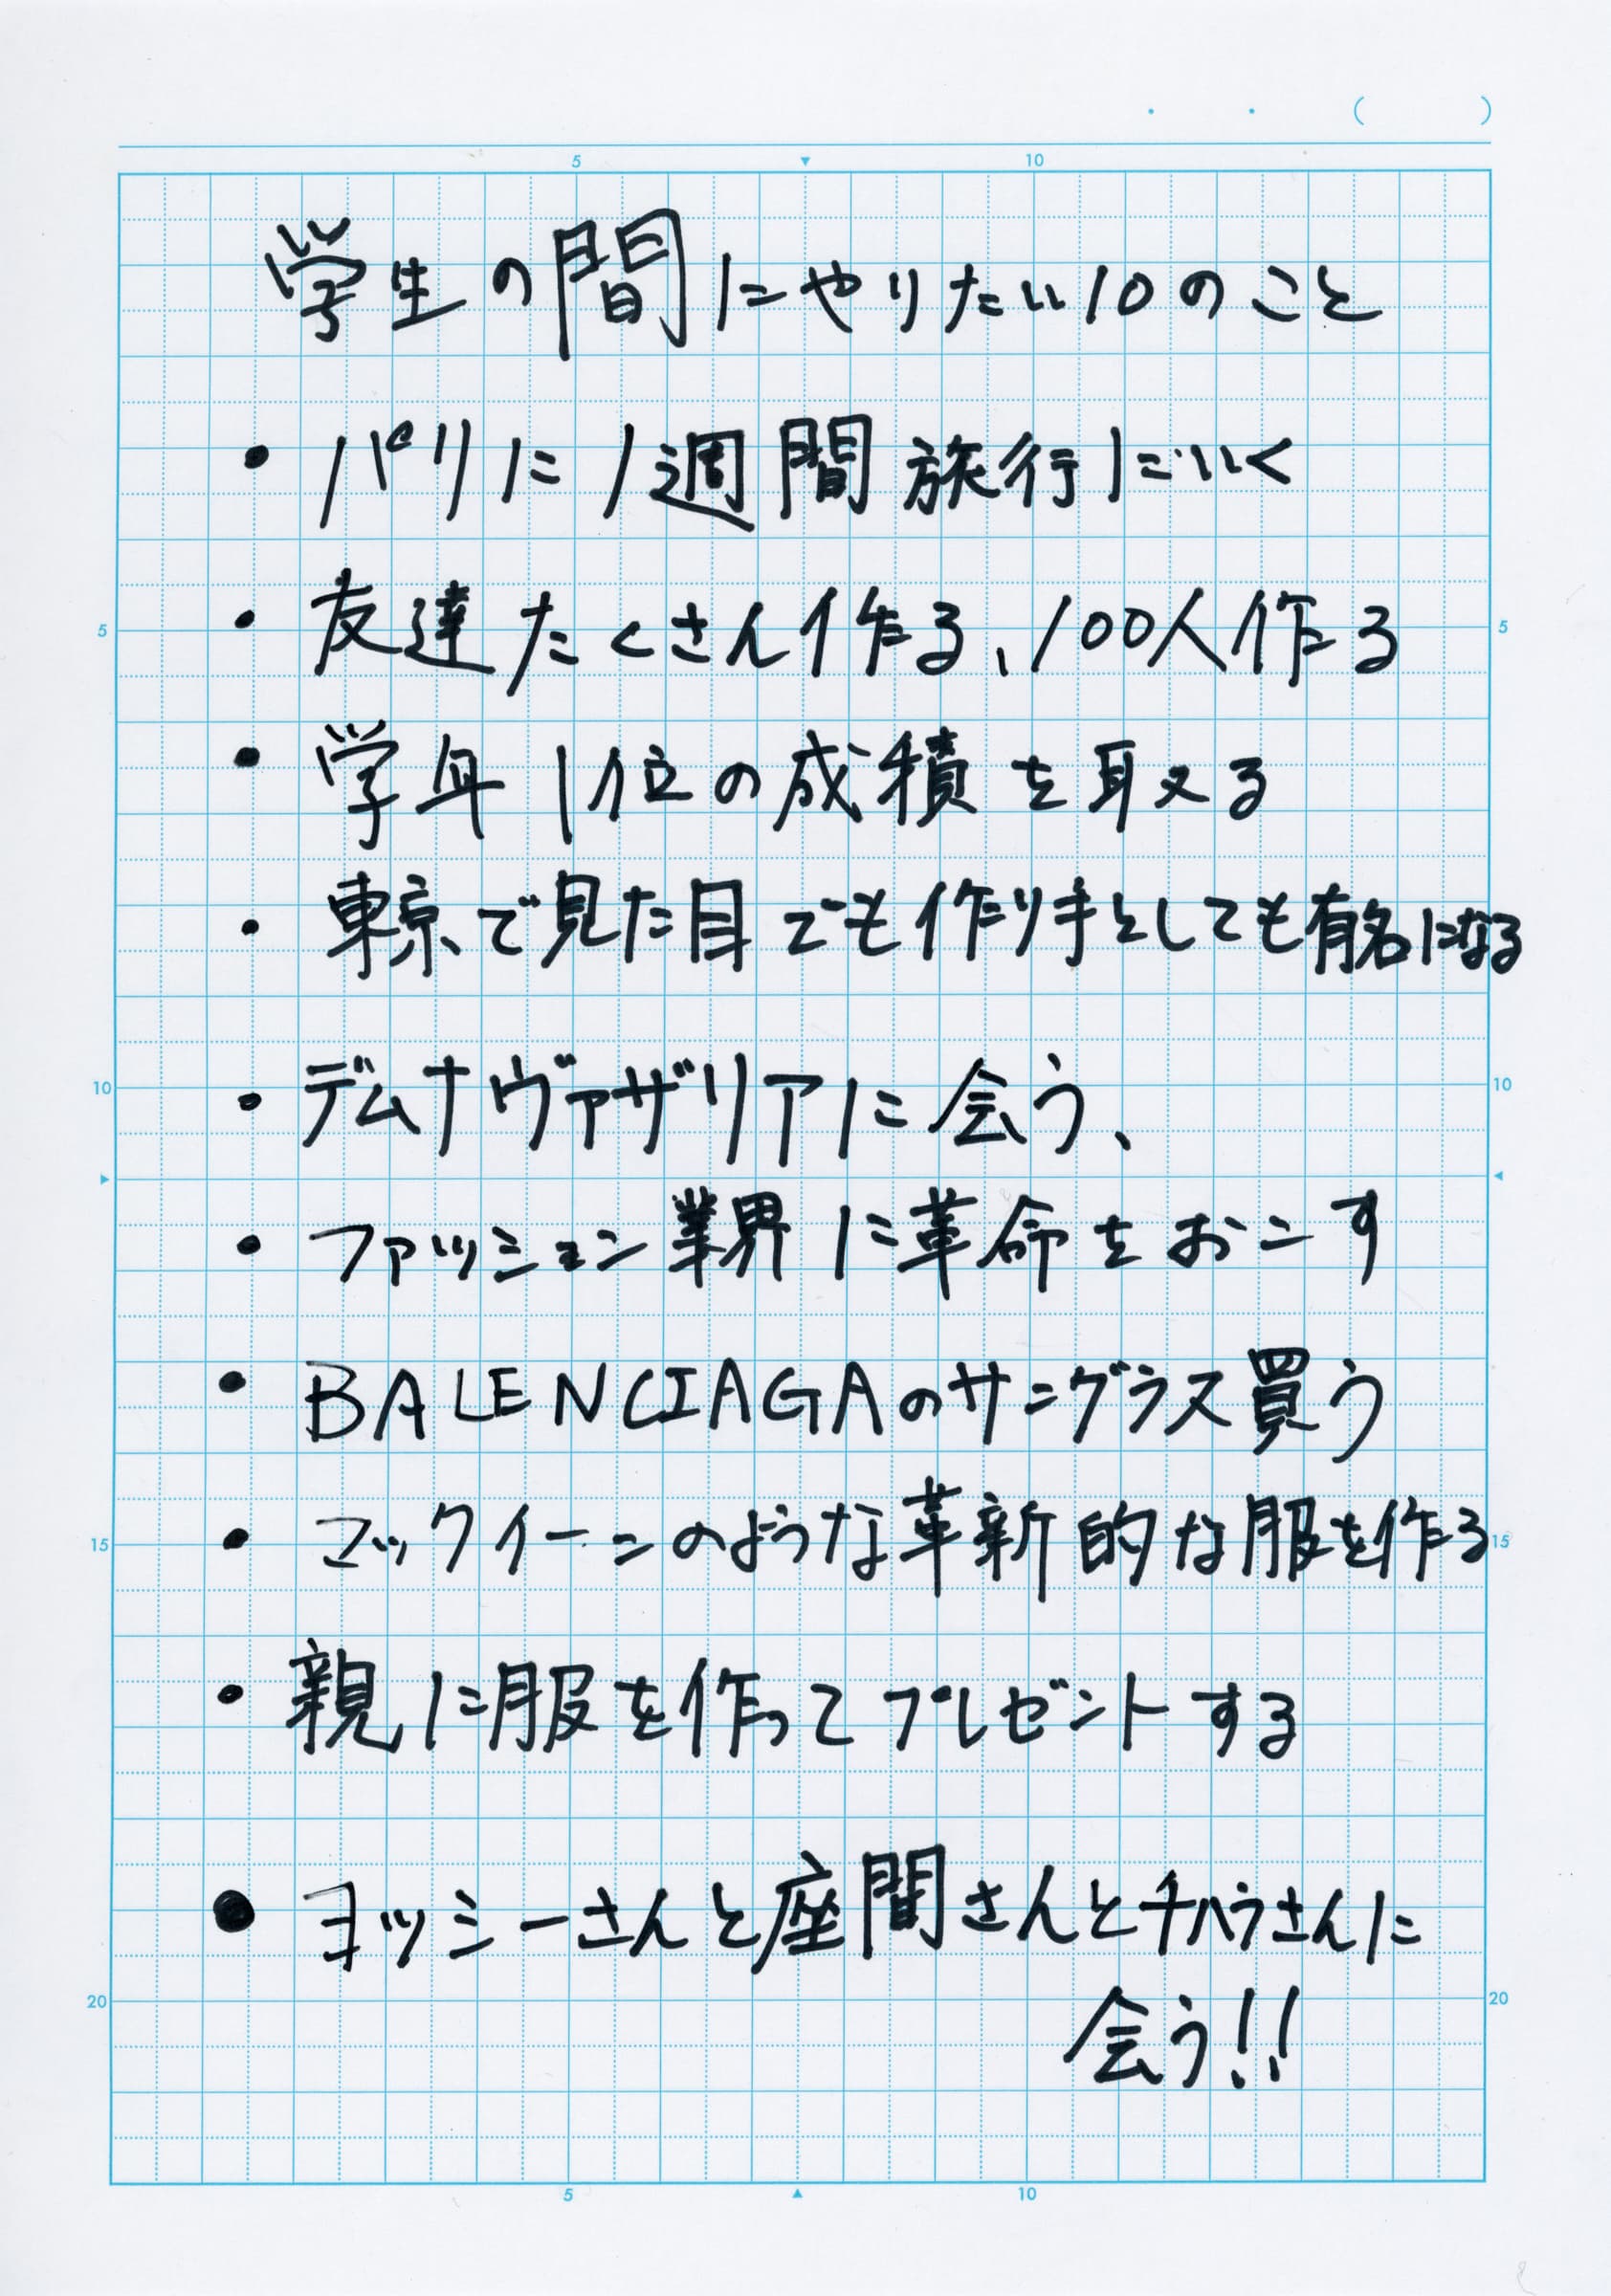 ( )
5 10
学生の間にやりたい10のこと
・パリに1週間旅行にいく
・友達たくさん作る、100人作る
5 5
・学年1位の成積を取る
・東京で見た目でも作り手としても有名になる
・デムナヴァザリアに会う、
10 10
・ファッション業界に革命をおこす
・BALENCIAGAのサングラス買う
・マックイーンのような革新的な服を作る
15 15
・親に服を作ってプレゼントする
●ヨッシーさんと座間さんとチハラさんに
会う!!
20 20
5 10